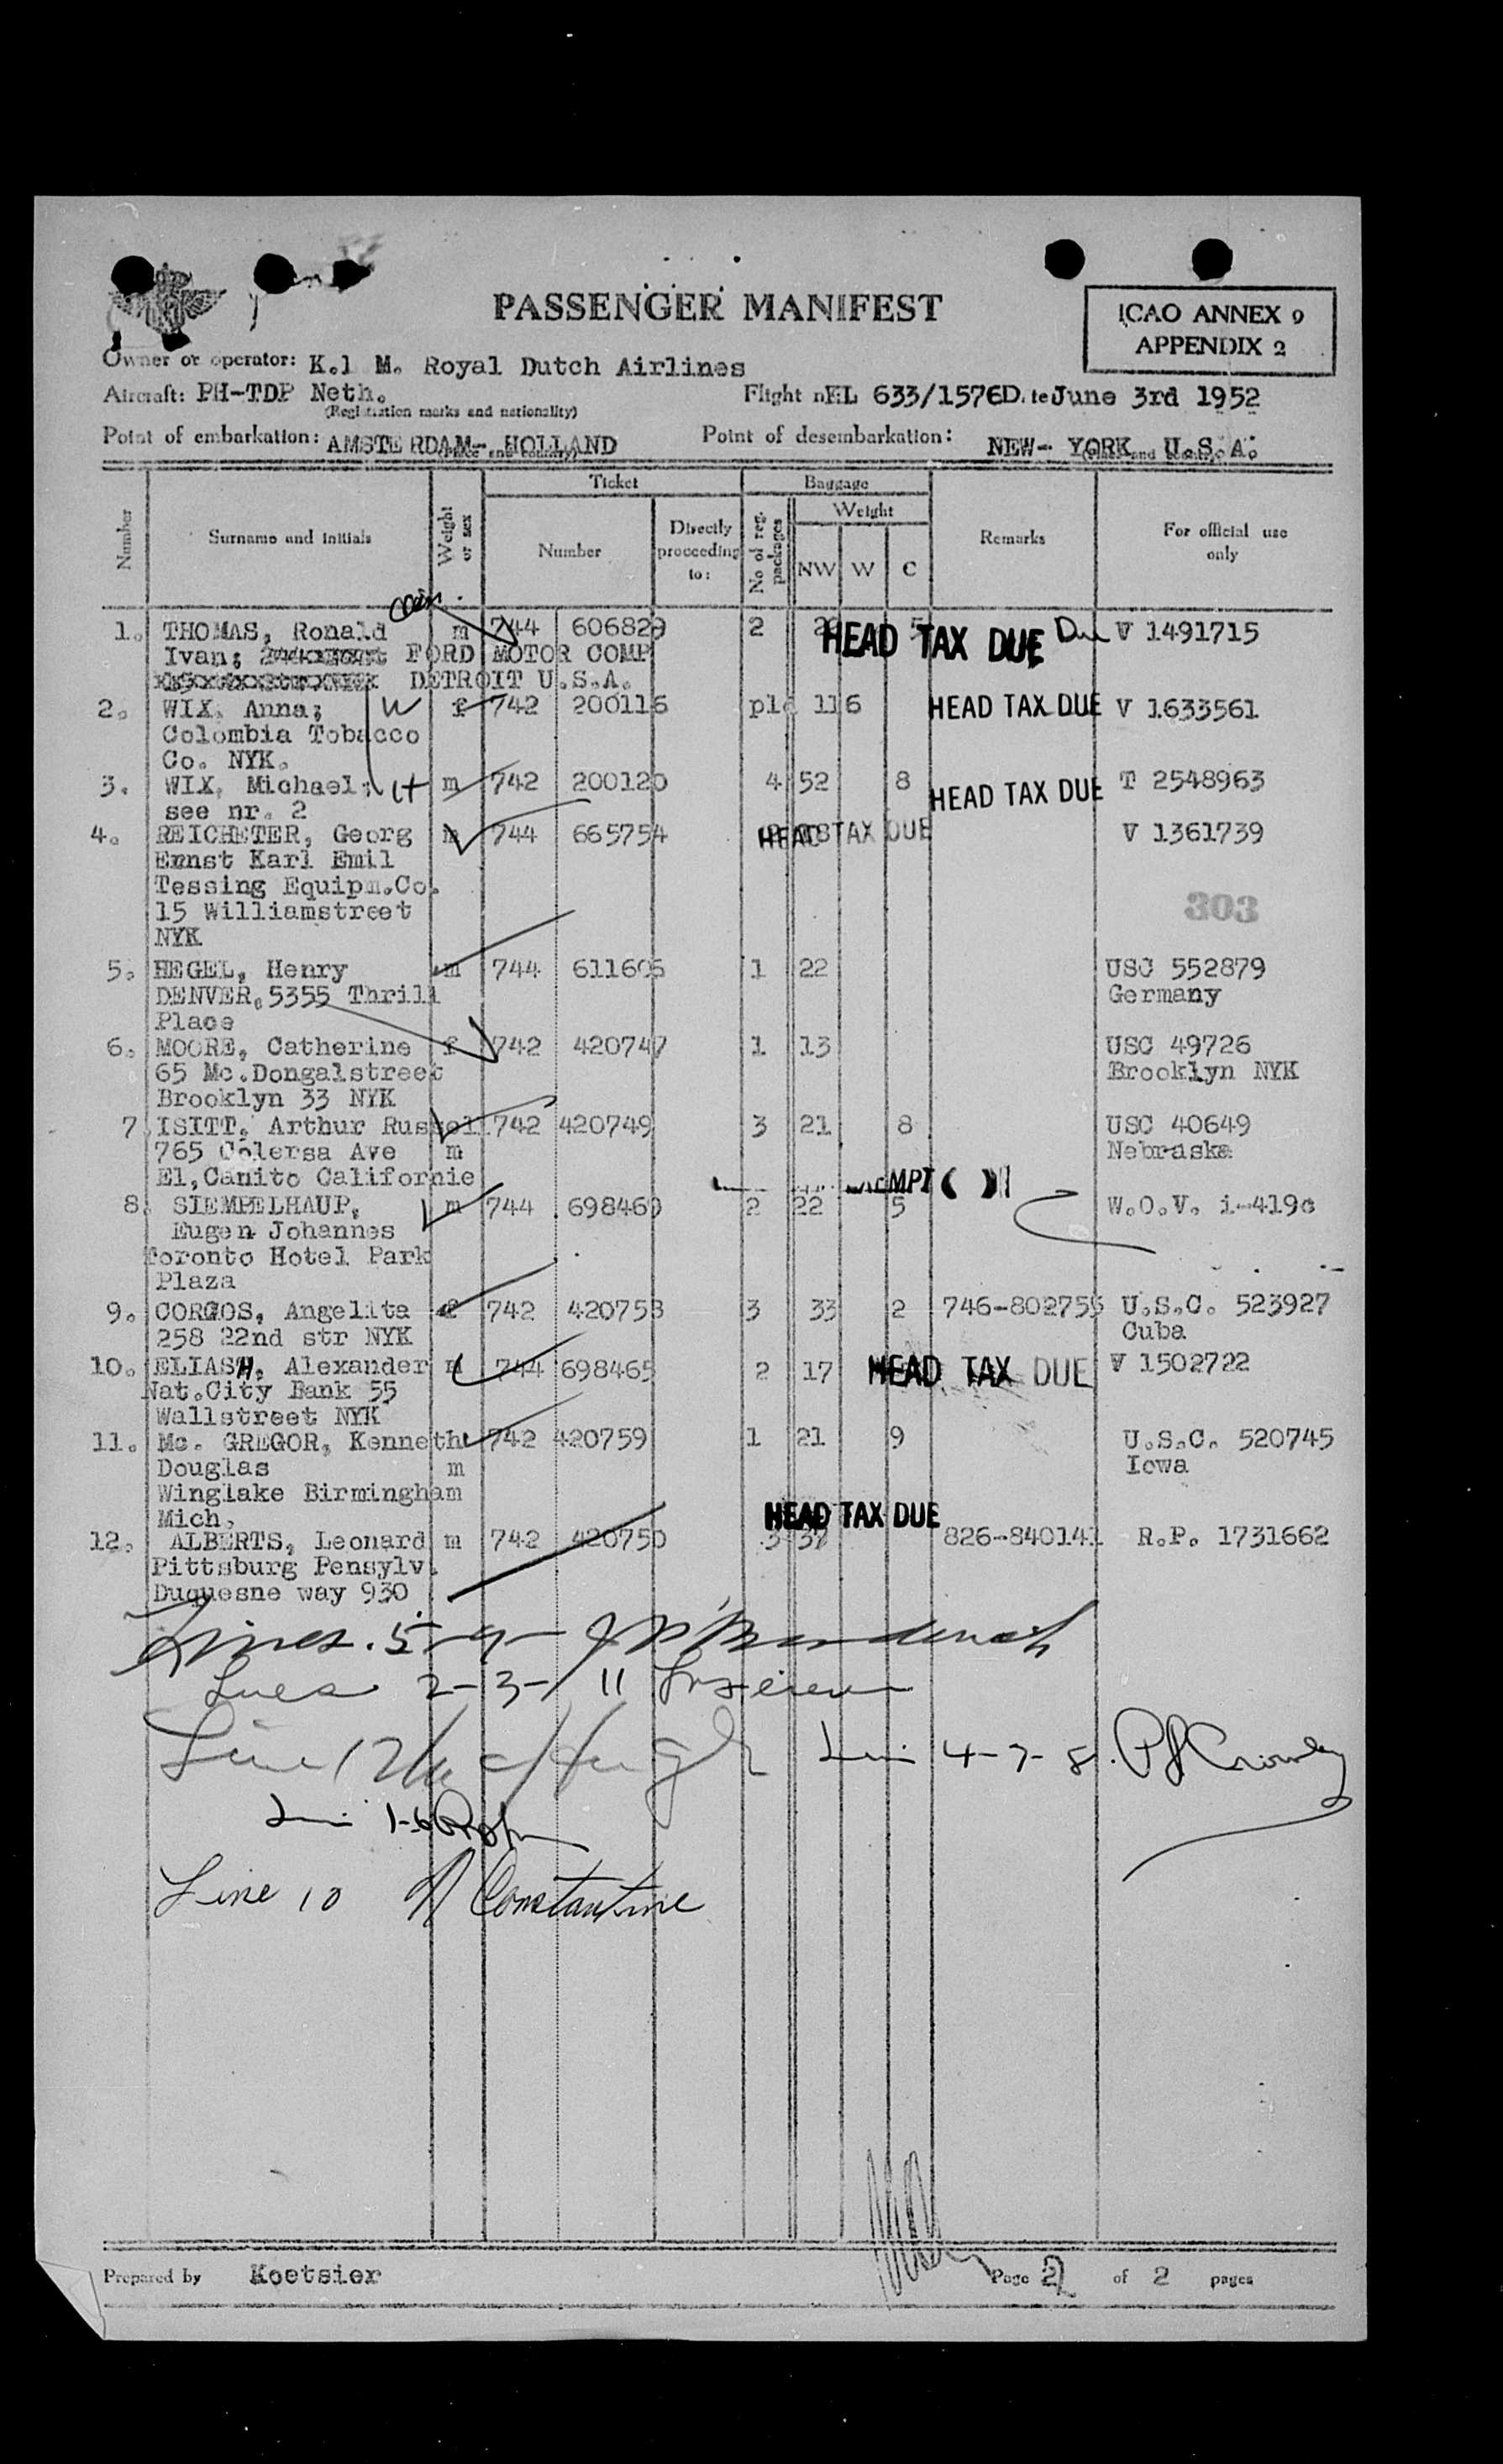 PASSENGER MANIFEST
ICAO ANNEX 9
APPENDIX 2
Owner or operator: K.l M. Royal Dutch Airlines
Aircraft: PH-TDP Neth. Flight nKL 633/1576D.te June 3rd 1952
(Registration marks and nationality)
Point of embarkation: AMSTERDAM- HOLLAND Point of desembarkation: NEW- YORK U.S.A.
(Place and country) (Place and country)
Number Surname and initials Weight or sex Ticket Number Directly proceeding to: Baggage No of reg. packages Weight NW W C Remarks For official use only
1. THOMAS, Ronald m 744 606829 2 HEAD TAX DUE V 1491715
Ivan; FORD MOTOR COMP
DETROIT U.S.A.
2. WIX, Anna; W f 742 200116 plc 116 HEAD TAX DUE V 1633561
Colombia Tobacco
Co. NYK.
3. WIX, Michael; H m 742 200120 4 52 8 HEAD TAX DUE T 2548963
see nr. 2
4. REICHETER, Georg m 744 665754 HEAD TAX DUE V 1361739
Ernst Karl Emil
Tessing Equipm.Co.
15 Williamstreet 303
NYK
5. HEGEL, Henry m 744 611606 1 22 USC 552879
DENVER, 5355 Thrill Germany
Place
6. MOORE, Catherine f 742 420747 1 13 USC 49726
65 Mc.Dongalstreet Brooklyn NYK
Brooklyn 33 NYK
7. ISITT, Arthur Russel 742 420749 3 21 8 USC 40649
765 Colersa Ave m Nebraska
El,Canito Californie
8. SIEMPELHAUP, m 744 698460 2 22 5 W.O.V. i-419c
Eugen Johannes
Toronto Hotel Park
Plaza
9. CORGOS, Angelita f 742 420753 3 33 2 746-802755 U.S.C. 523927
258 22nd str NYK Cuba
10. ELIASH, Alexander m 744 698465 2 17 HEAD TAX DUE V 1502722
Nat.City Bank 55
Wallstreet NYK
11. Mc. GREGOR, Kenneth 742 420759 1 21 9 U.S.C. 520745
Douglas m Iowa
Winglake Birmingham
Mich. HEAD TAX DUE
12. ALBERTS, Leonard m 742 420750 3 37 826-840141 R.P. 1731662
Pittsburg Pensylv.
Duquesne way 930
Lines. 5-9-
Lines 2-3- 11
Line 12 Line 4-7-8. Crowley
Line 1-6
Line 10 Constantine
Prepared by Koetsier Page 2 of 2 pages